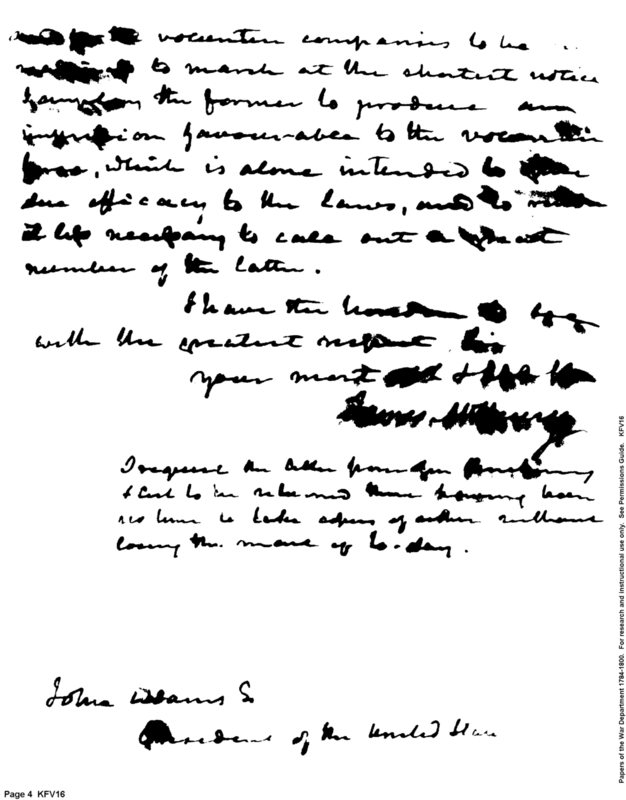 volunteer companies to be
to march at the shortest notice
the former to produce an
impression favourable to the volunteer
force, which is alone intended to
due efficacy to the laws, and to render
it less necessary to call out a great
number of the latter.
I have the honor to be
with the greatest respect Sir
your most
James McHenry
I request the letter from Gen
to be returned there having been
no time to take copies of either without
losing the mail of to-day.
John Adams
President of the United States
Page 4 KFV16
Papers of the War Department 1784-1800. For research and instructional use only. See Permissions Guide. KFV16